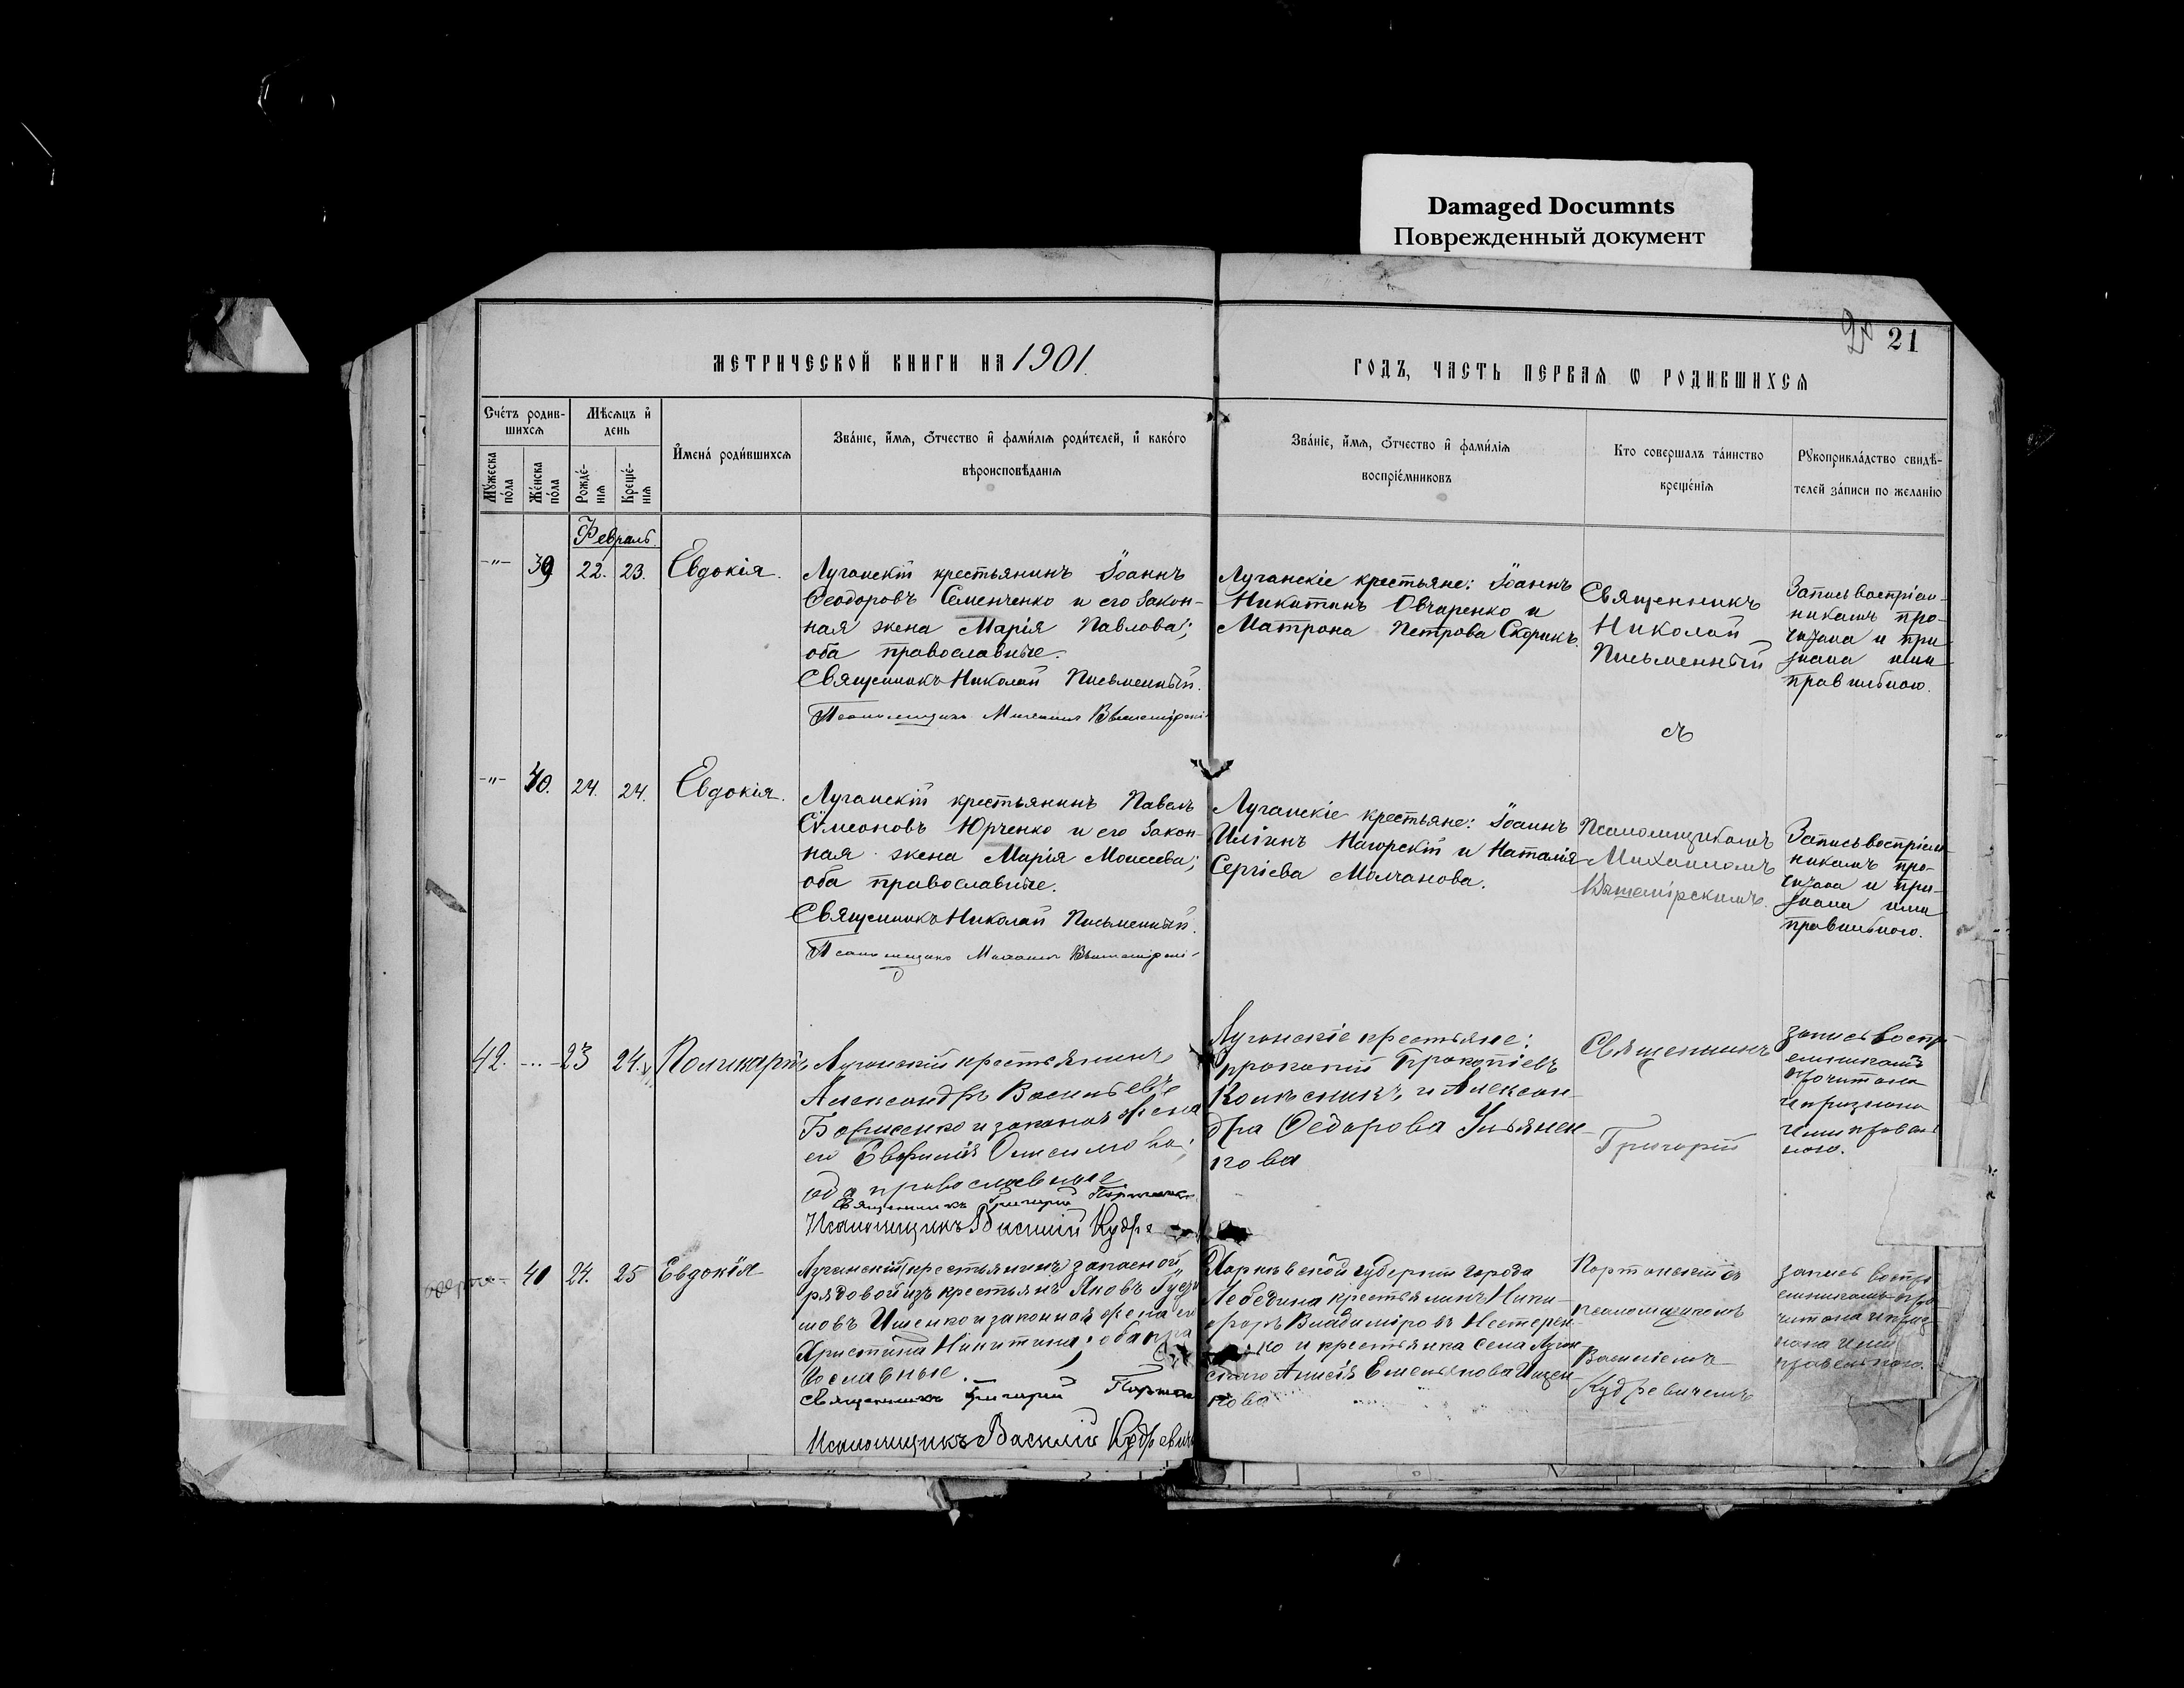 Damaged Documnts
Поврежденный документ
20 21
МЕТРИЧЕСКОЙ КНИГИ НА 1901.
ГОДЪ, ЧАСТЬ ПЕРВАЯ Ѡ РОДИВШИХСЯ
Сче́тъ родив-
шихся
Мѣсяцъ и҆
день
Му́жеска по́ла
Же́нска по́ла
Рожде́-
нія
Креще́-
нія
И҆мена̀ роди́вшихся
Зва́ніе, и҆́мя, ѻ҆́тчество и҆ фами́лія роди́телей, и҆ како́го
вѣроисповѣ́данія
Зва́ніе, и҆́мя, ѻ҆́тчество и҆ фами́лія
воспріе́мниковъ
Кто совершалъ та́инство
креще́нія
Рꙋкоприкла́дство свидѣ́-
телей за́писи по жела́нію
Февраль.
-"- 39 22. 23. Евдокія.
Луганскій крестьянинъ Іоаннъ
Ѳеодоровъ Семенченко и его закон-
ная жена Марія Павлова;
оба православные.
Священникъ Николай Письменный.
Псаломщикъ Михаилъ
Луганскіе крестьяне: Іоаннъ
Никитинъ Овчаренко и
Матрона Петрова Скорик
Священникъ
Николай
Письменный
съ
Запись воспріем-
никамъ про-
читана и при-
знана ими
правильною.
-"- 40. 24. 24. Евдокія.
Луганскій крестьянинъ Павелъ
Сѵмеоновъ Юрченко и его закон-
ная жена Марія Моисеева;
оба православные.
Священникъ Николай Письменный.
Псаломщикъ Михаилъ
Луганскіе крестьяне: Іоаннъ
Иліинъ Нагорскій и Наталія
Сергіева Молчанова.
Псаломщикомъ
Михаиломъ
Запись воспріем-
никамъ про-
читана и при-
знана ими
правильною.
42. -..- 23 24. Поликарпъ
Луганскій крестьянинъ
Александръ Васильевъ
Борисенко и законная жена
его Евфимія Онисимова;
оба православные
Священникъ Григорій
Псаломщикъ Василій Кудре
Луганскіе крестьяне:
Прокопій Прокопіевъ
Колѣсникъ и Алексан-
дра Ѳедорова Ульянен-
кова
Священникъ
Григорій
запись воспр
емникамъ
прочитана
и признана
ими правиль
ною.
41 24. 25 Евдокія
Луганскій (крестьянинъ) запасной
рядовой изъ крестьянъ Яковъ
мовъ Ищенко и законная жена его
Христина Никитина; оба пра
вославные.
Священникъ Григорій
Псаломщикъ Василій Кудревичъ
Харьковской губерніи города
Лебедина крестьянинъ Ники-
форъ Владиміровъ Нестерен-
ко и крестьянка села Луган
скаго Анисія Емельянова Ищен-
кова
Портянскій съ
псаломщикомъ
Василіемъ
Кудревичемъ
запись воспрі
емникамъ про
читана и приз
нана ими
правильною.